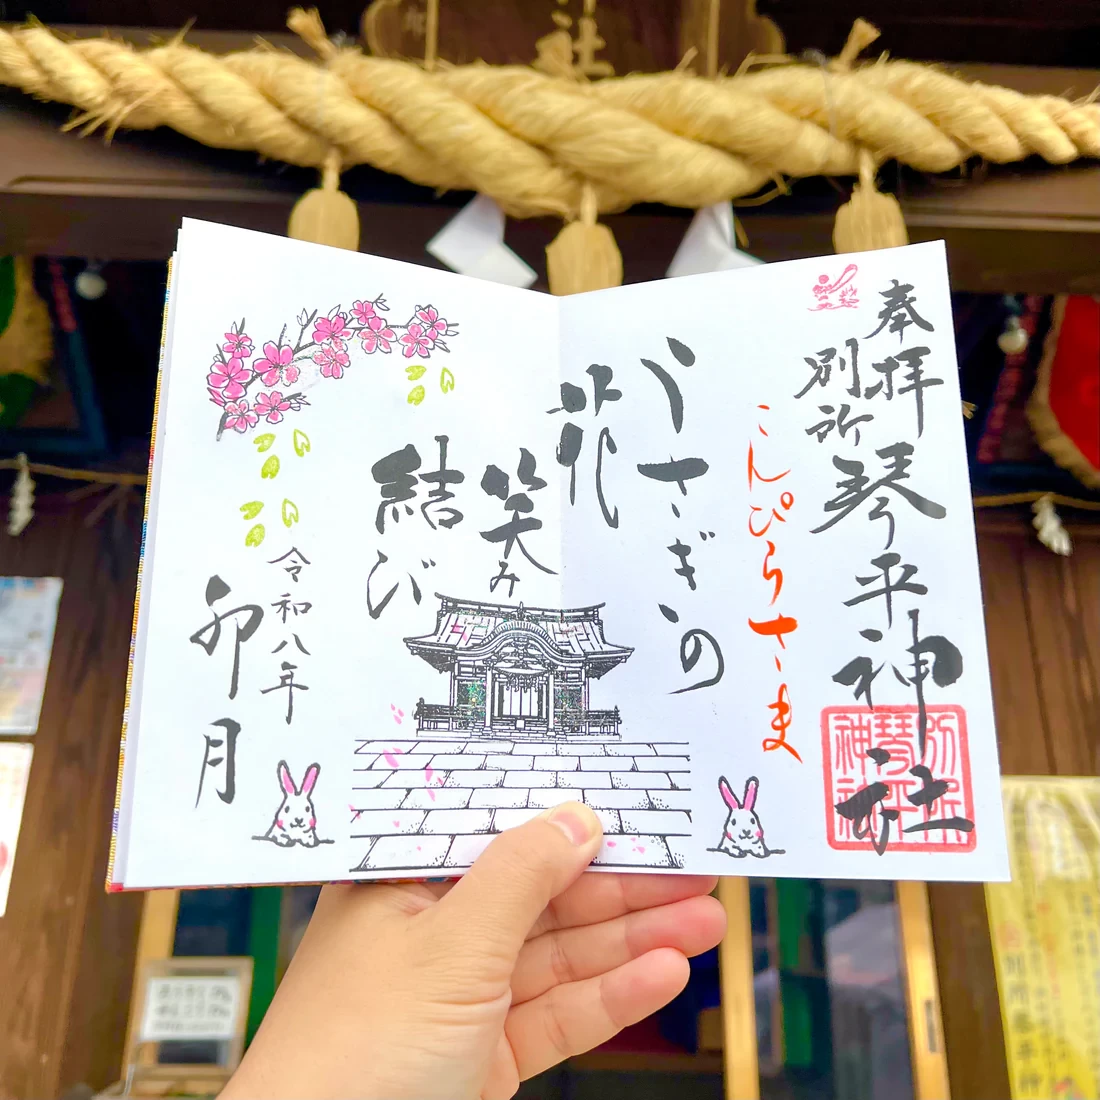 奉拝
別所
琴平神社
別所琴平神社
こんぴらさま
うさぎの
花
笑み
結び
令和八年
卯月
社